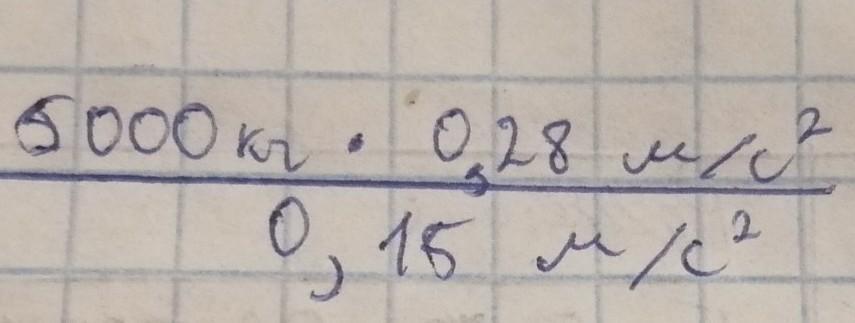 5000 кг · 0,28 м/с²
0,15 м/с²